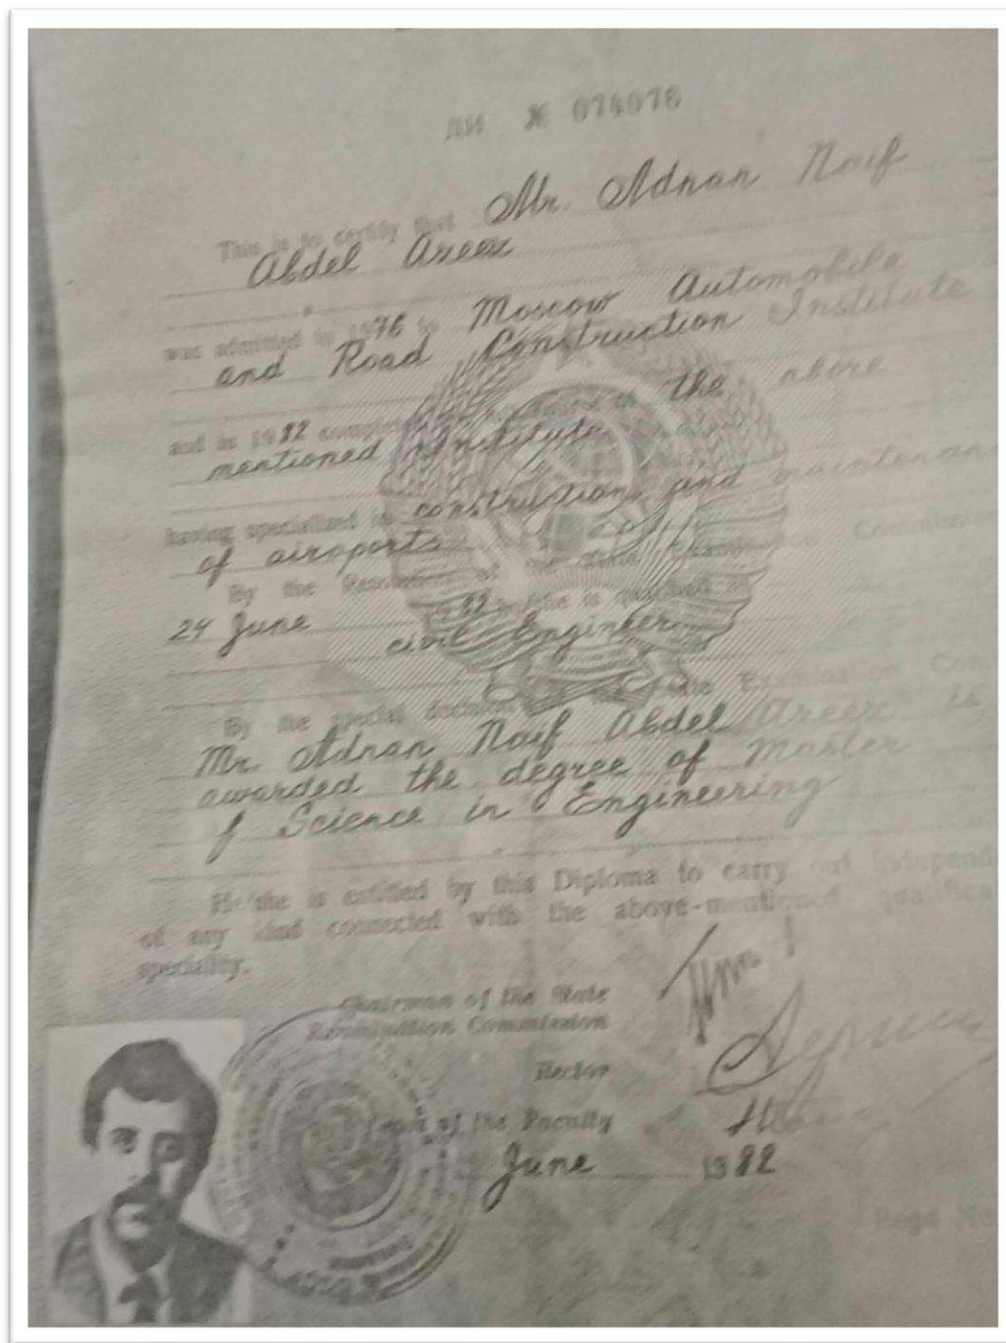 № 074076
This is to certify that Mr. Adnan Naif
Abdel Azeez
was admitted in 1976 to Moscow Automobile
and Road Construction Institute
and in 1982 the above
mentioned Institute
having specialized in construction and
of airports
By the Examination Commission
24 June 82 he/she is qualified
civil Engineer
By the special decision Examination
Mr. Adnan Naif Abdel Azeez is
awarded the degree of Master
of Science in Engineering
He/she is entitled by this Diploma to carry out
of any kind connected with the above-mentioned
speciality.
Chairman of the State
Examination Commission
Rector
of the Faculty
June 1982
Regd No